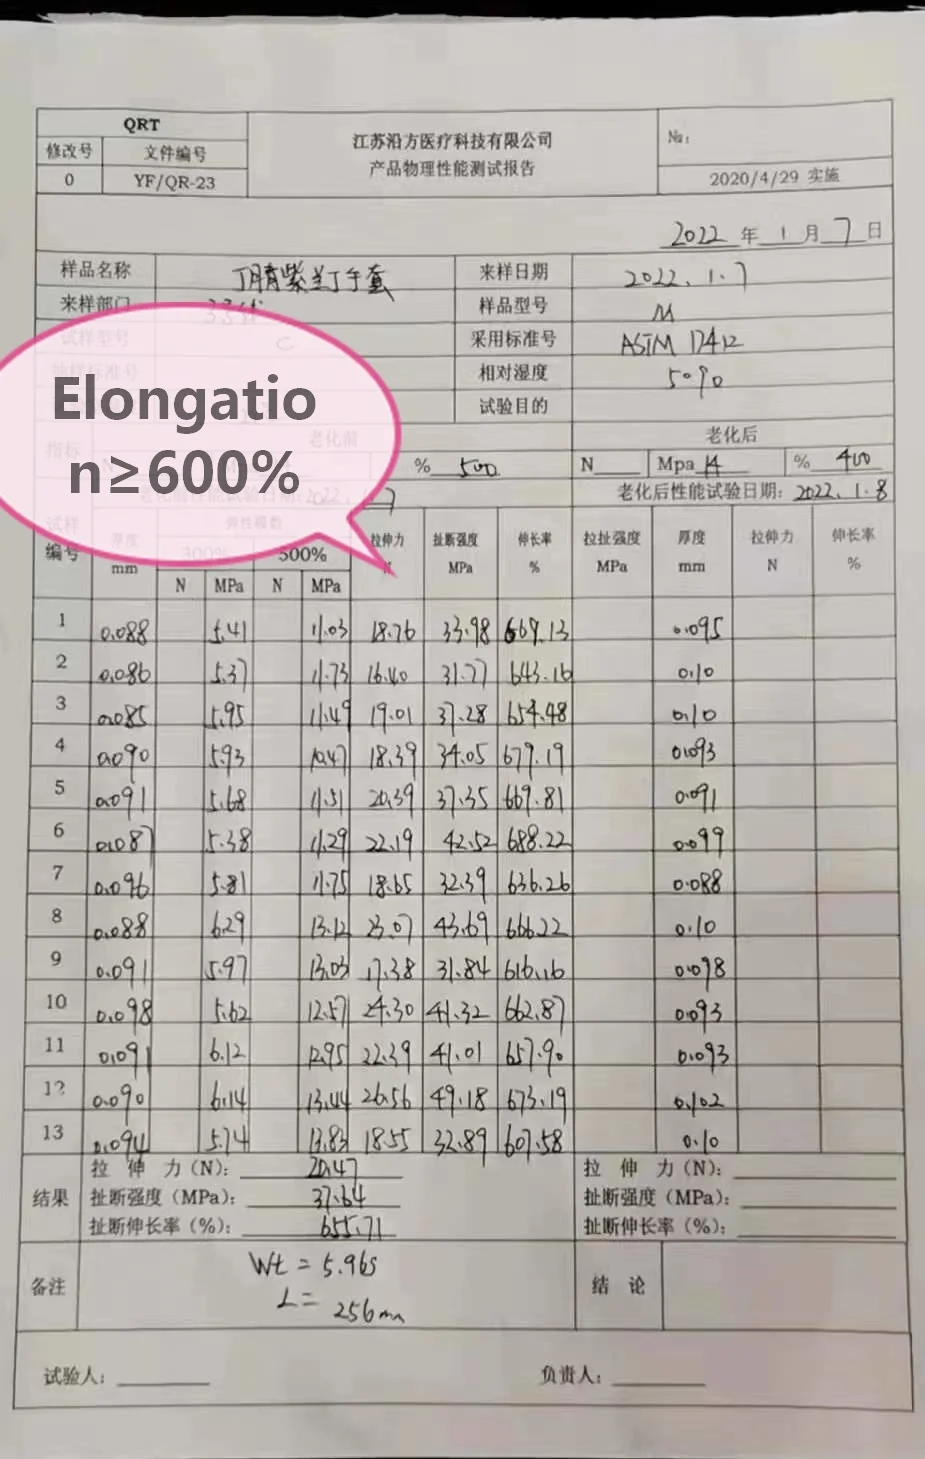 QRT
修改号 文件编号
0 YF/QR-23
江苏沿方医疗科技有限公司
产品物理性能测试报告
№:
2020/4/29 实施
2022 年 1 月 7 日
样品名称 丁腈紫兰丁手套 来样日期 2022.1.7
来样部门 样品型号 M
试样型号 C 采用标准号 ASTM
相对湿度 50%
试验目的
Elongatio
n≥600%
指标 老化前 老化后
% 500 N Mpa 14 % 400
老化后性能试验日期: 2022.1.8
试样
编号 厚度 mm 弹性模数 300% N MPa 500% N MPa 拉伸力 N 扯断强度 MPa 伸长率 % 拉扯强度 MPa 厚度 mm 拉伸力 N 伸长率 %
1 0.088 5.41 11.03 18.76 33.98 669.13 0.095
2 0.086 5.37 11.73 16.40 31.77 643.16 0.10
3 0.085 5.95 11.49 19.01 37.28 654.48 0.10
4 0.090 5.93 10.47 18.39 34.05 679.19 0.093
5 0.091 5.68 11.51 20.39 37.35 669.81 0.091
6 0.087 5.38 11.29 22.19 42.52 688.22 0.099
7 0.096 5.81 11.75 18.65 32.39 636.26 0.088
8 0.088 6.29 13.12 23.07 43.69 666.22 0.10
9 0.091 5.97 13.03 17.38 31.84 616.16 0.098
10 0.098 5.62 12.57 24.30 41.32 662.87 0.093
11 0.091 6.12 12.95 22.39 41.01 657.90 0.093
12 0.090 6.14 13.44 26.56 49.18 673.19 0.102
13 0.094 5.74 13.83 18.55 32.89 607.58 0.10
结果
拉 伸 力(N): 20.47 拉 伸 力(N):
扯断强度(MPa): 37.64 扯断强度(MPa):
扯断伸长率(%): 655.71 扯断伸长率(%):
备注 Wt = 5.96g 结 论
L = 256mm
试验人: 负责人: